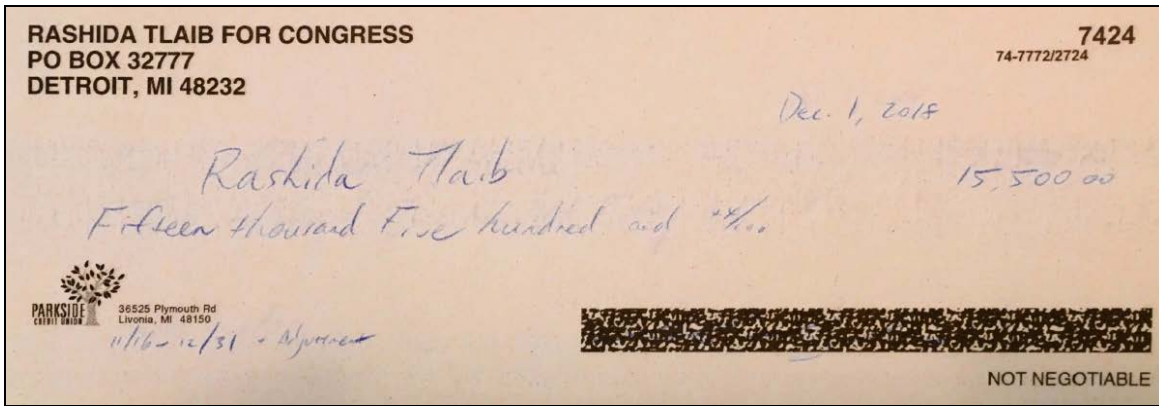 RASHIDA TLAIB FOR CONGRESS
PO BOX 32777
DETROIT, MI 48232
7424
74-7772/2724
Dec. 1, 2018
Rashida Tlaib
15,500.00
Fifteen thousand Five hundred and xx/100
PARKSIDE
CREDIT UNION
36525 Plymouth Rd
Livonia, MI 48150
11/16 - 12/31 + Adjustment
NOT NEGOTIABLE